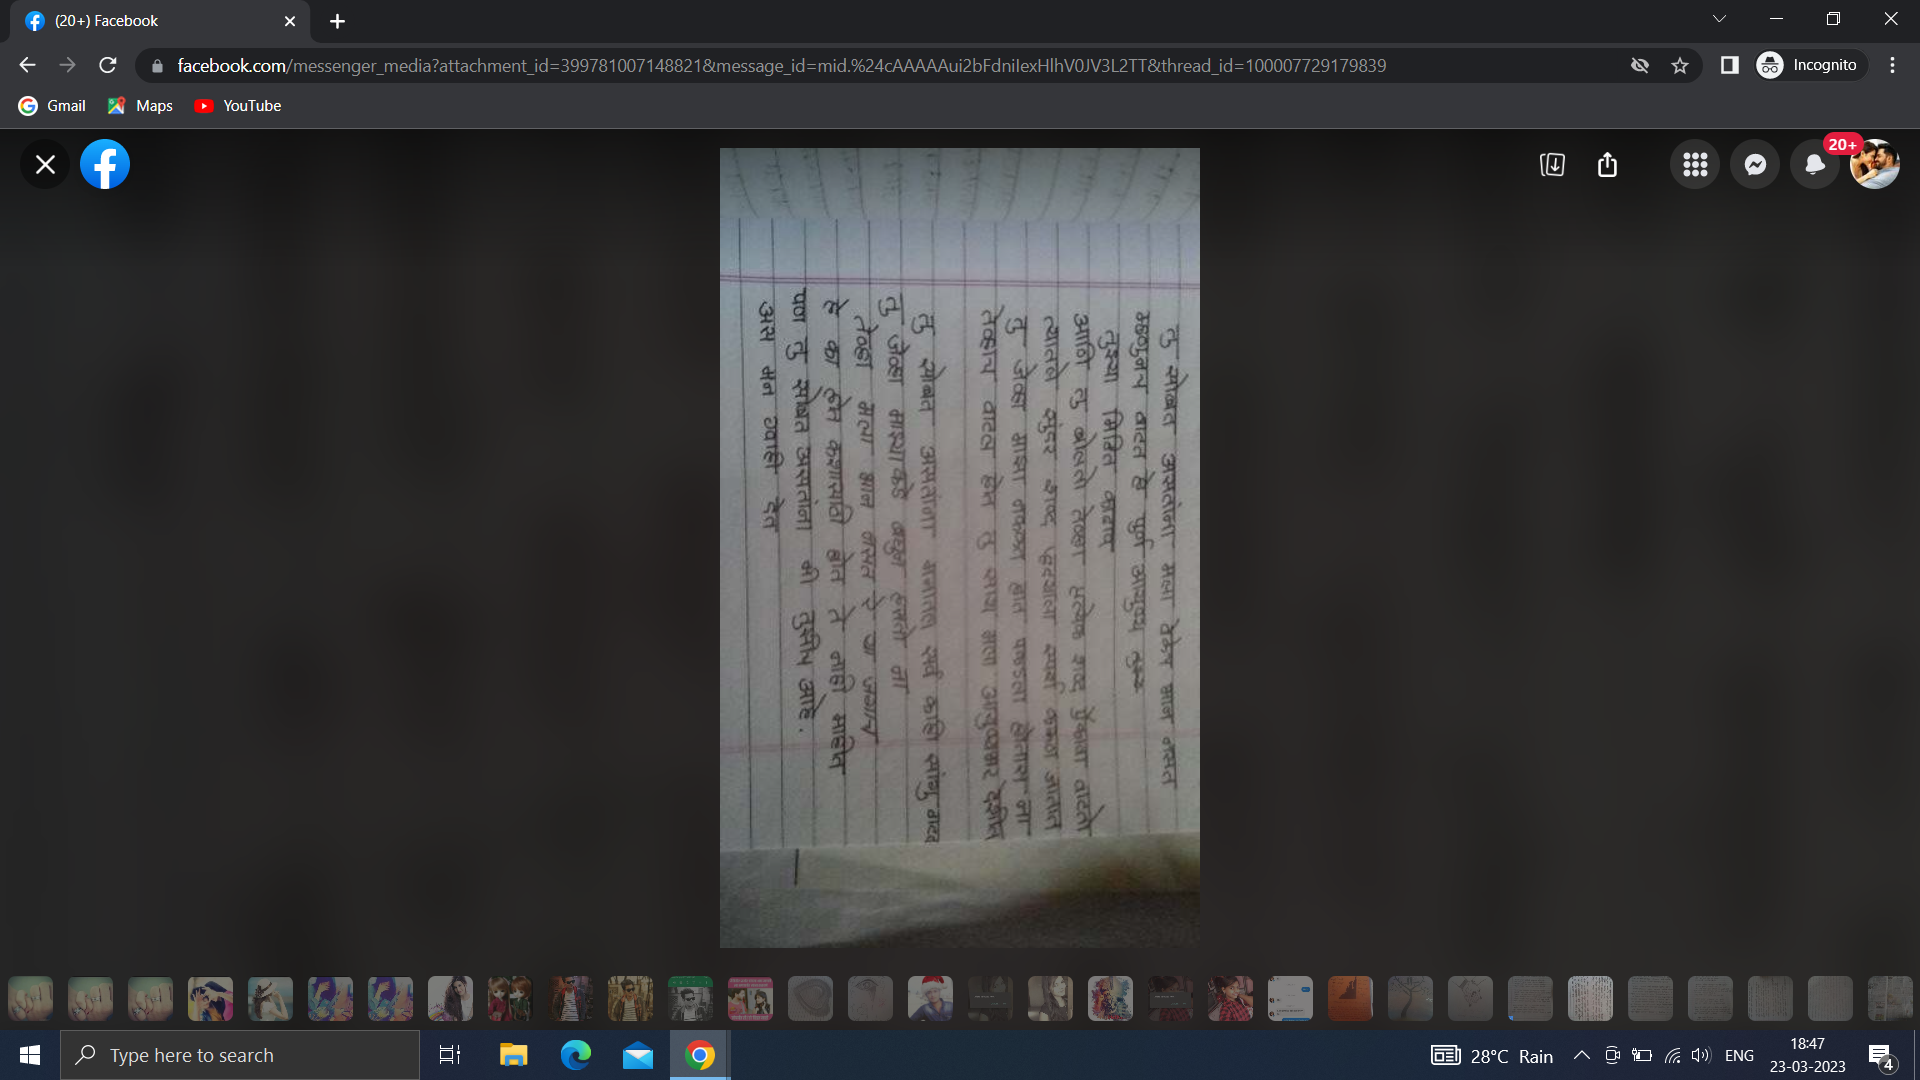 (20+) Facebook
facebook.com/messenger_media?attachment_id=399781007148821&message_id=mid.%24cAAAAAui2bFdniIexHlhV0JV3L2TT&thread_id=100007729179839
Incognito
Gmail
Maps
YouTube
20+
तु सोबत असतांना मला कसच भान नसत
म्हणुनच वाटत हे पुर्ण आयुष्य तुझ्या
तुझ्या मिठित
आणि तु बोलतो तेव्हा प्रत्येक शब्द ऐकावा वाटतो
त्यातले सुंदर शब्द हृदयाला स्पर्श करून जातात
तु जेव्हा माझा हात पकडला होतास ना
तेव्हाच वाटल होत तु साथ मला आयुष्यभर देशील
तु सोबत असतांना मनातल सर्व काही सांगु वाटत
तु जेव्हा माझ्याकडे बघुन हसतो ना
तेव्हा मला भान नसत रे या जगाच
हे का होत कशासाठी होत ते नाही माहीत
पण तु सोबत असतांना मी तुझीच आहे.
अस मन ग्वाही देत
Type here to search
28°C Rain
ENG
18:47
23-03-2023
4